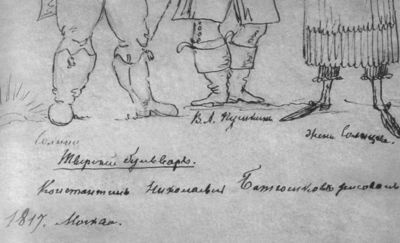 В. Л. Пушкин
Солнцев жена Солнцева.
Тверской бульваръ.
Константинъ Николаевич Батюшковъ рисовалъ
1817. Москва.